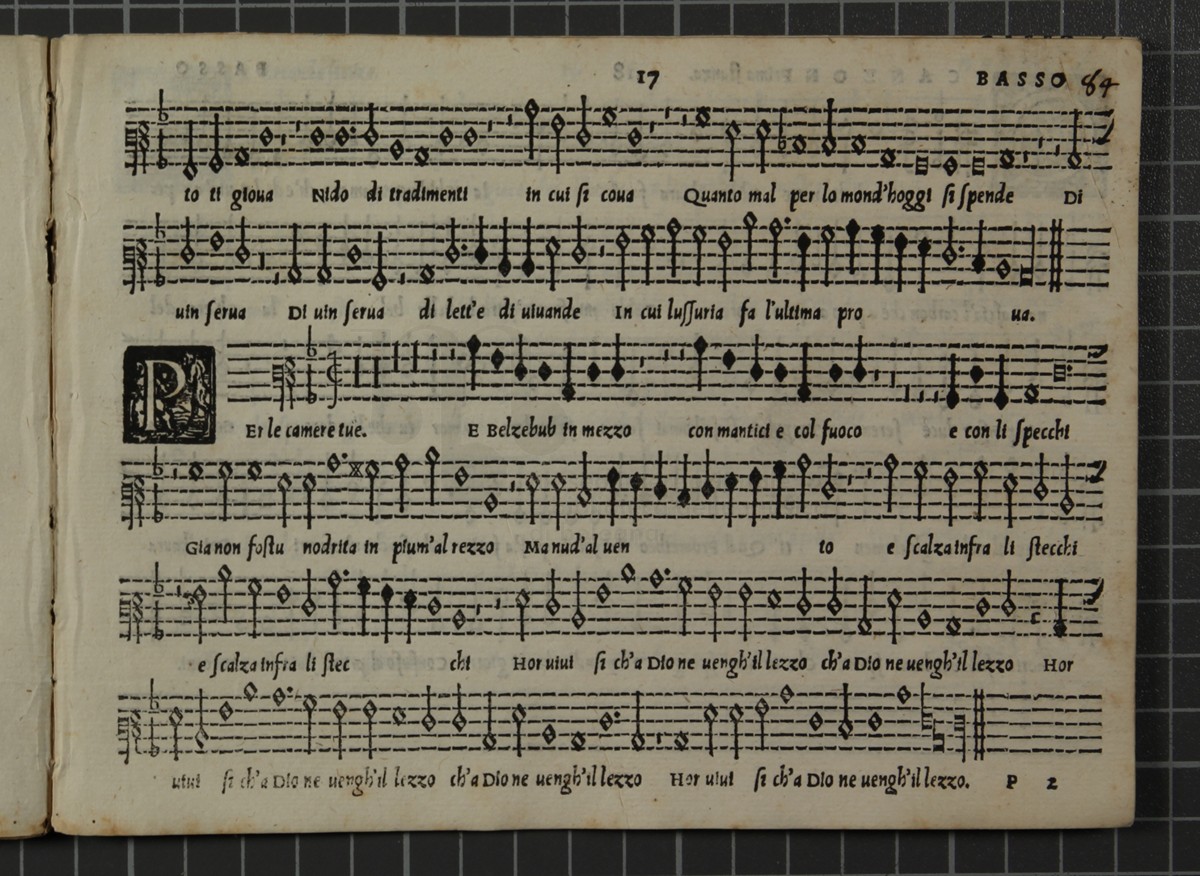 17 BASSO 84
to ti gioua Nido di tradimenti in cui ſi coua Quanto mal per lo mond'hoggi ſi ſpende Di
uin ſerua Di uin ſerua di lett'e di uiuande In cui luſſuria fa l'ultima pro ua.
P Er le camere tue. E Belzebub in mezzo con mantici e col fuoco e con li ſpecchi
Gia non foſtu nodrita in pium'al rezzo Ma nud'al uen to e ſcalza infra li ſtecchi
e ſcalza infra li ſtec chi Hor uiui ſi ch'a Dio ne uengh'il lezzo ch'a Dio ne uengh'il lezzo Hor
uiui ſi ch'a Dio ne uengh'il lezzo ch'a Dio ne uengh'il lezzo Hor uiui ſi ch'a Dio ne uengh'il lezzo. P 2